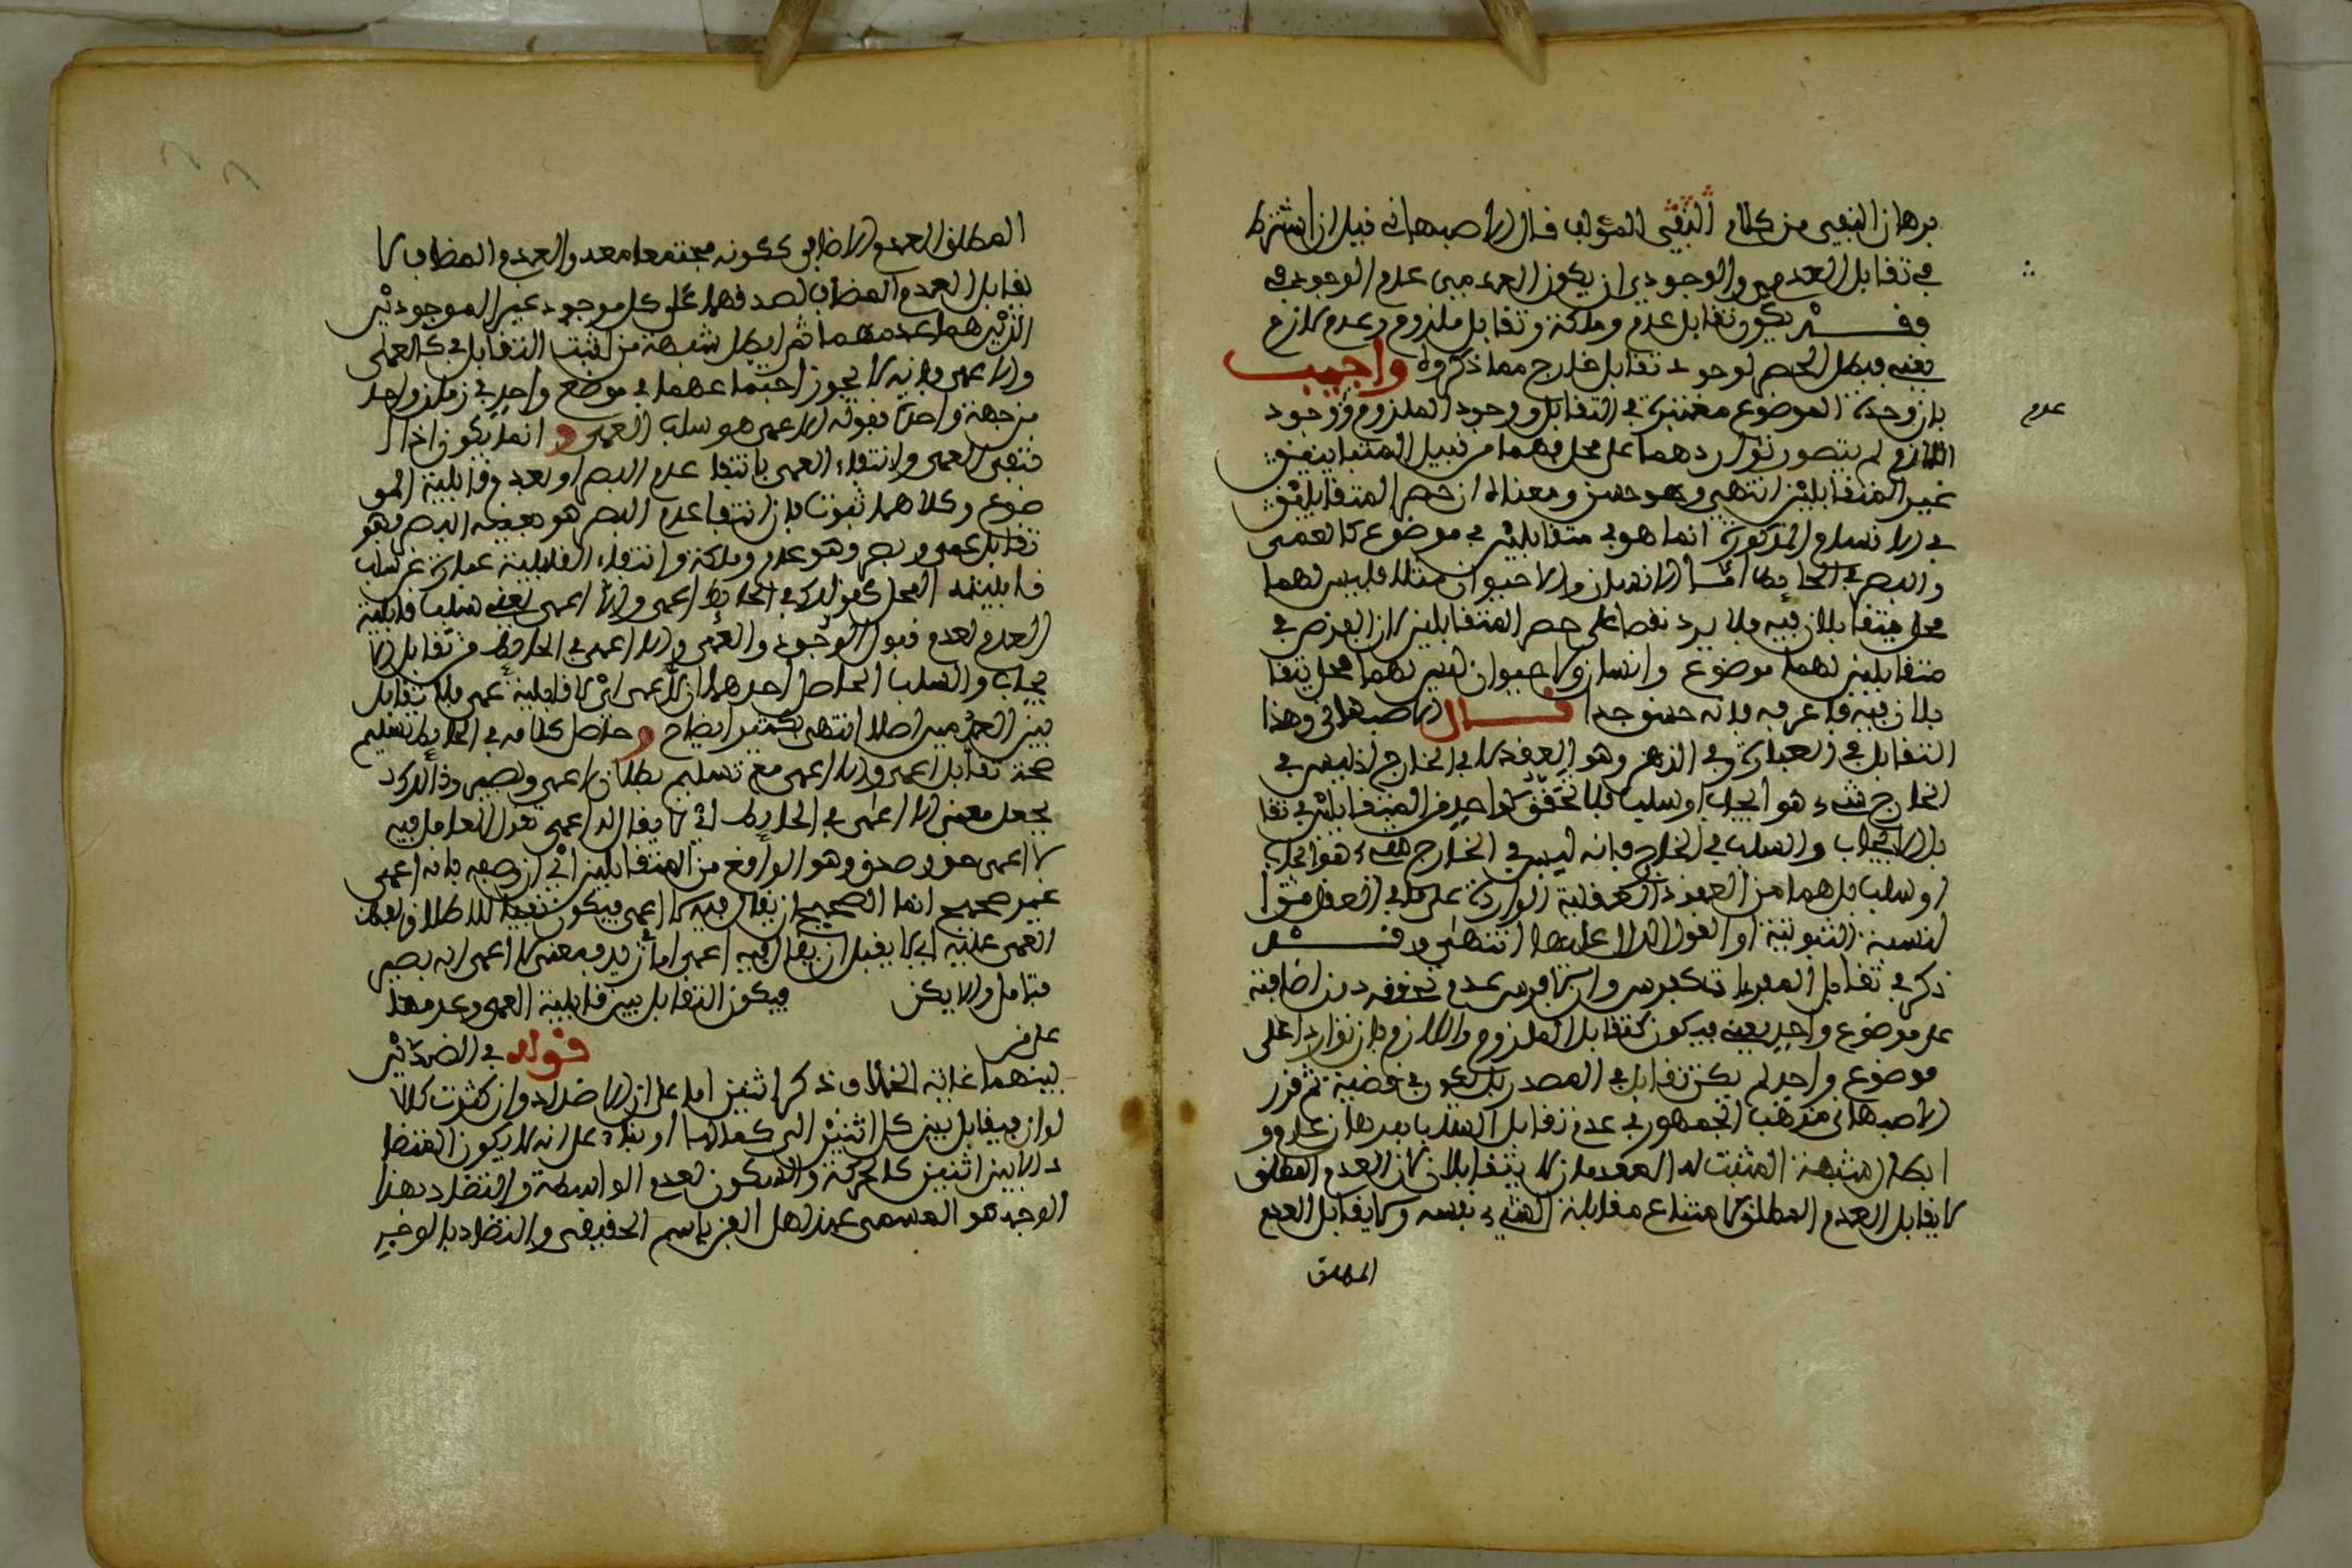 برهان النفي من كلام النفي المؤلف قال الاصبهاني قيل ان اشترط
في تقابل العدمي والوجودي ان يكون العدمي عدم الوجودي في
وقد يكون تقابل عدم وملكة وتقابل ملزوم وعدم لازم
يعني فبطل الحصر لوجود تقابل خارج مما ذكروه واجيب
بان وحدة الموضوع معتبرة في التقابل ووجود الملزوم ووجود
عدم
اللازم لم يتصور تواردهما على محل فهما من قبيل المتباينين
غير المتقابلين انتهى وهو حسن ومعناه ان حصر المتقابلين
في الاقسام المذكورة انما هو في متقابلين في موضوع كالعمى
والبصر في الحايط اما الانسان والاحيوان مثلا فليس لهما
محل يتقابلان فيه فلا يرد نقضا على حصر المتقابلين لان الغرض في
متقابلين لهما موضوع وانسان ولا حيوان ليس لهما محل يتقا
بلان فيه فاعرفه فانه حسن جدا قال الاصبهاني وهذا
التقابل في العبارة وفي الذهن وهو العقد لا في الخارج اذ ليس في
الخارج شيء هو ايجاب او سلب فلا تحقق لواحد من المتقابلين في تقا
بل الايجاب والسلب في الخارج فانه ليس في الخارج شيء هو ايجاب
او سلب بل هما من العقود العقلية الواردة على ما في العقل من
النسبة الثبوتية او القول الدال عليها انتهى وقد
ذكر في تقابل المفردات كفرس ولا فرس عدم تحققه دون اضافته
على موضوع واحد يعني فيكون كتقابل الملزوم واللازم فان تواردا على
موضوع واحد لم يكن تقابل في المفرد بل يكون في قضية ثم قرر
الاصبهاني مذهب الجمهور في عدم تقابل السلب ببرهان عدم و
ابطال شبهة المثبت له العدمان لا يتقابلان لان العدم المطلق
لا يقابل العدم المطلق لامتناع مقابلة الشيء نفسه ولا يقابل العدم
المطلق
المطلق العدم الاضافي لكونه مجتمعا معه والعدم المضاف لا
يقابل العدم المضاف لصدقهما على كل موجود غير الموجودين
الذين هما عدمهما ثم ابطل شبهة من اثبت التقابل في كالعمى
والاعمى فانه لا يجوز اجتماعهما في موضع واحد في زمان واحد
من جهة واحدة بقوله الاعمى هو سلب العمى وانما يكون اذا ا
نتفى العمى وانتفاء العمى بانتفا عدم البصر او بعدم قابلية المو
ضوع وكلاهما ثبوت فان انتفا عدم البصر هو بعينه البصر فهو
تقابل عمى وبصر وهو عدم وملكة وانتفاء القابلية عبارة عن سلب
قابلية المحل كقولك في الحايط اعمى ولا اعمى يعني سلب قابلية
العدم لعدم قبول الوجود والعمى والاعمى في الحايط من تقابل الا
يجاب والسلب الحاصل احدهما ان الاعمى اي لا قابلية عمى فلا تقابل
بين العدميين اصلا انتهى بكثير ايضاح وحاصل كلامه في الحايط تسليم
صحة تقابل اعمى والااعمى مع تسليم بطلان لا عمى وبصير وذالك
بجعل معنى لا اعمى في الحايط اي لا يقال له اعمى
لا اعمى حق وصدق وهو الواقع من المتقابلين اي ان وصفه بانه اعمى
غير صحيح انما الصحيح ان يقال فيه لا اعمى فيكون نفيا للاطلاق لفظ
العمى عليه اي لا يقبل ان يقال فيه اعمى اما زيد فمعنى لا اعمى انه بصير
فتامل ولا يكن فيكون التقابل بين قابلية العمى وعدمها
على من قوله في الضدين
بينهما غاية الخلاف ذكر اثنين اما على ان الاضداد وان كثرت كلا
لوان فيقابل بين كل اثنين او بناء على انه لا يكون التضا
د الا بين اثنين كالحركة والسكون لعدم الواسطة والتضاد بهذا
الوجه هو المسمى عند اهل الفن باسم الحقيقي والتضاد بالوجه